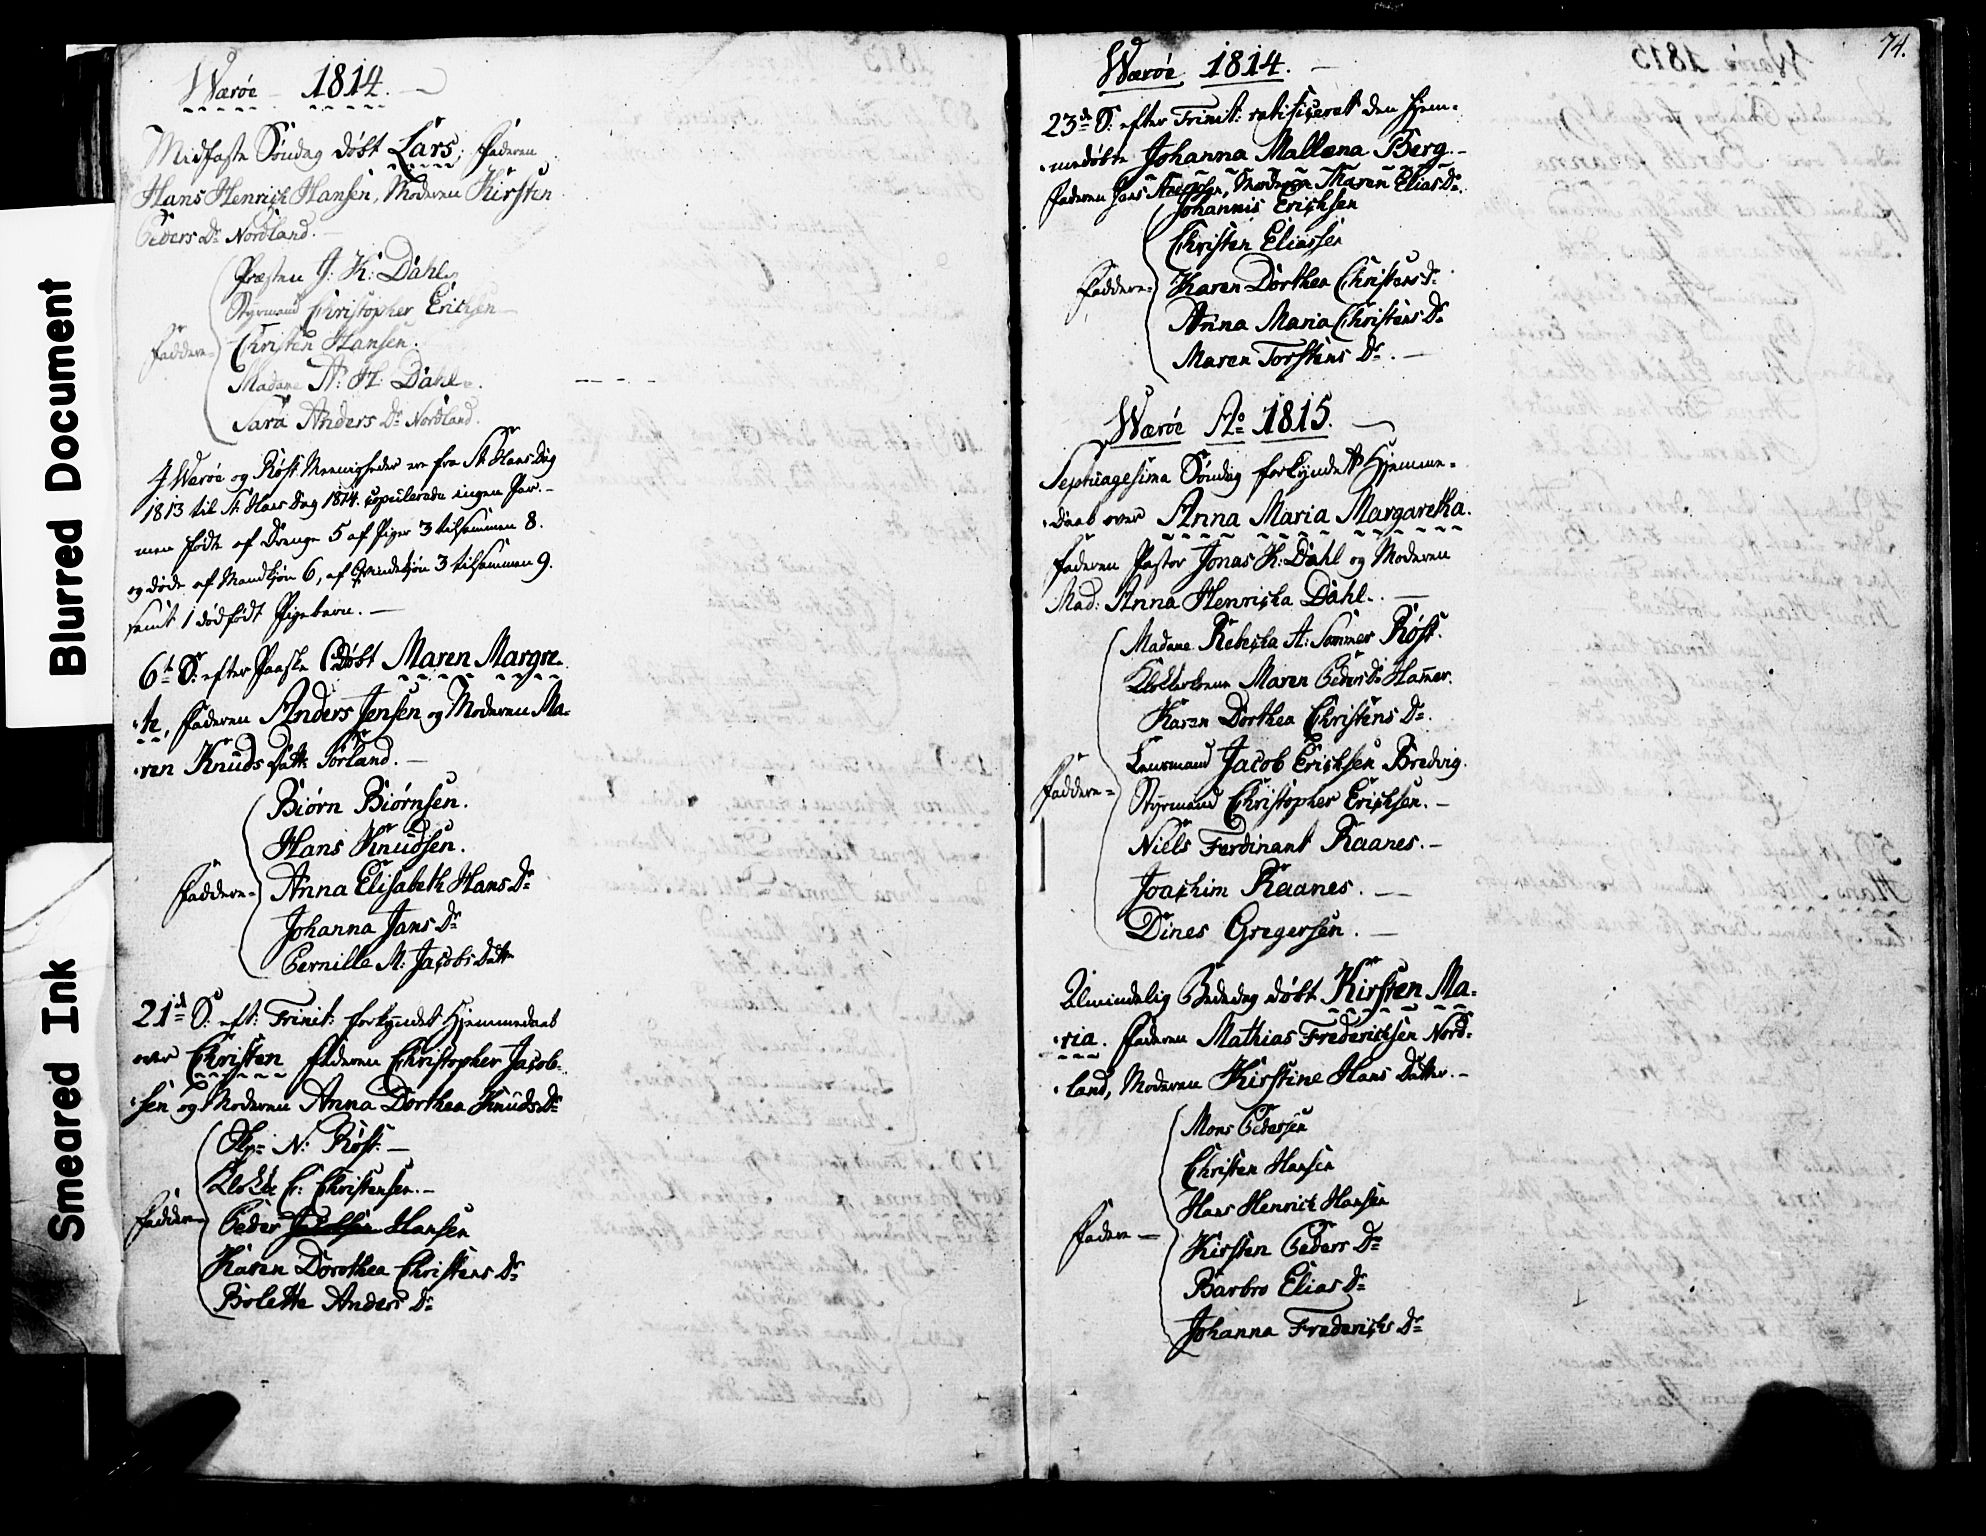 Blurred Document
Smeared Ink
Wærøe 1814.
Midfaste Søndag døbt Lars, Faderen
Hans Henrich Hansen, Moderen Kirsten
Peders Dr Nordland.
Præsten J: K: Dahl
Styrmand Christopher Erichsen
Faddere
Christen Hansen.
Madame A: H: Dahl.
Sara Anders Dr Nordland.
I Wærøe og Røst Menigheder ere fra St Hans Dag
1813 til St Hans Dag 1814 copulerede ingen Par.
men fødte af Drenge 5 af Piger 3 tilsammen 8.
og døde af Mandkjøn 6, af Qvindekjøn 3 tilsammen 9.
samt 1 dødfødt Pigebarn.
6te S: efter Paaske døbt Maren Margre-
-te, Faderen Anders Jensen og Moderen Ma-
-ren Knuds Datt: Sørland.
Biørn Biørnsen.
Hans Knudsen.
Faddere
Anna Elisabeth Hans Dr
Johanna Jans Dr
Pernille M: Jacobs Datt
21de S: eft: Trinit: forkyndet Hjemmedaab
over Christen Faderen Christopher Jacob-
-sen og Moderen Anna Dorthea Knuds Dr
N: Røst.
Klokker C: Christensen.
Faddere
Peder Hansen
Karen Dorothea Christens Dr
Bolette Anders Dr
74.
Wærøe 1814.
23de S: efter Trinit: ratificeret den hjem-
-medøbte Johanna Mallena Berg.
Faderen Jens Moderen Maren Elias Dr.
Johannis Erichsen
Christen Eliassen
Faddere
Karen Dorthea Christens Dr
Anna Maria Christens Dr
Maren Torstens Dr.
Wærøe Ao 1815.
Septuagesima Søndag forkyndet Hjemme-
-daab over Anna Maria Margaretha.
Faderen Pastor Jonas K: Dahl og Moderen
Mad: Anna Henricha Dahl.
Madame Rebecka A: Sommer Røst.
Klokkerkone Maren Peders Dr Hamer.
Karen Dorthea Christens Dr.
Lensmand Jacob Erichsen Bredvig.
Faddere
Styrmand Christopher Erichsen.
Niels Ferdinant Raanes.
Joachim Raanes.
Dines Gregersen.
Almindelig Bededag døbt Kirsten Ma-
-ria. Faderen Mathias Frederichsen Nord-
-land, Moderen Kirstine Hans Datter.
Mons Pedersen
Christen Hansen
Hans Henrich Hansen
Faddere
Kirsten Peders Dr
Barbro Elias Dr
Johanna Frederichs Dr